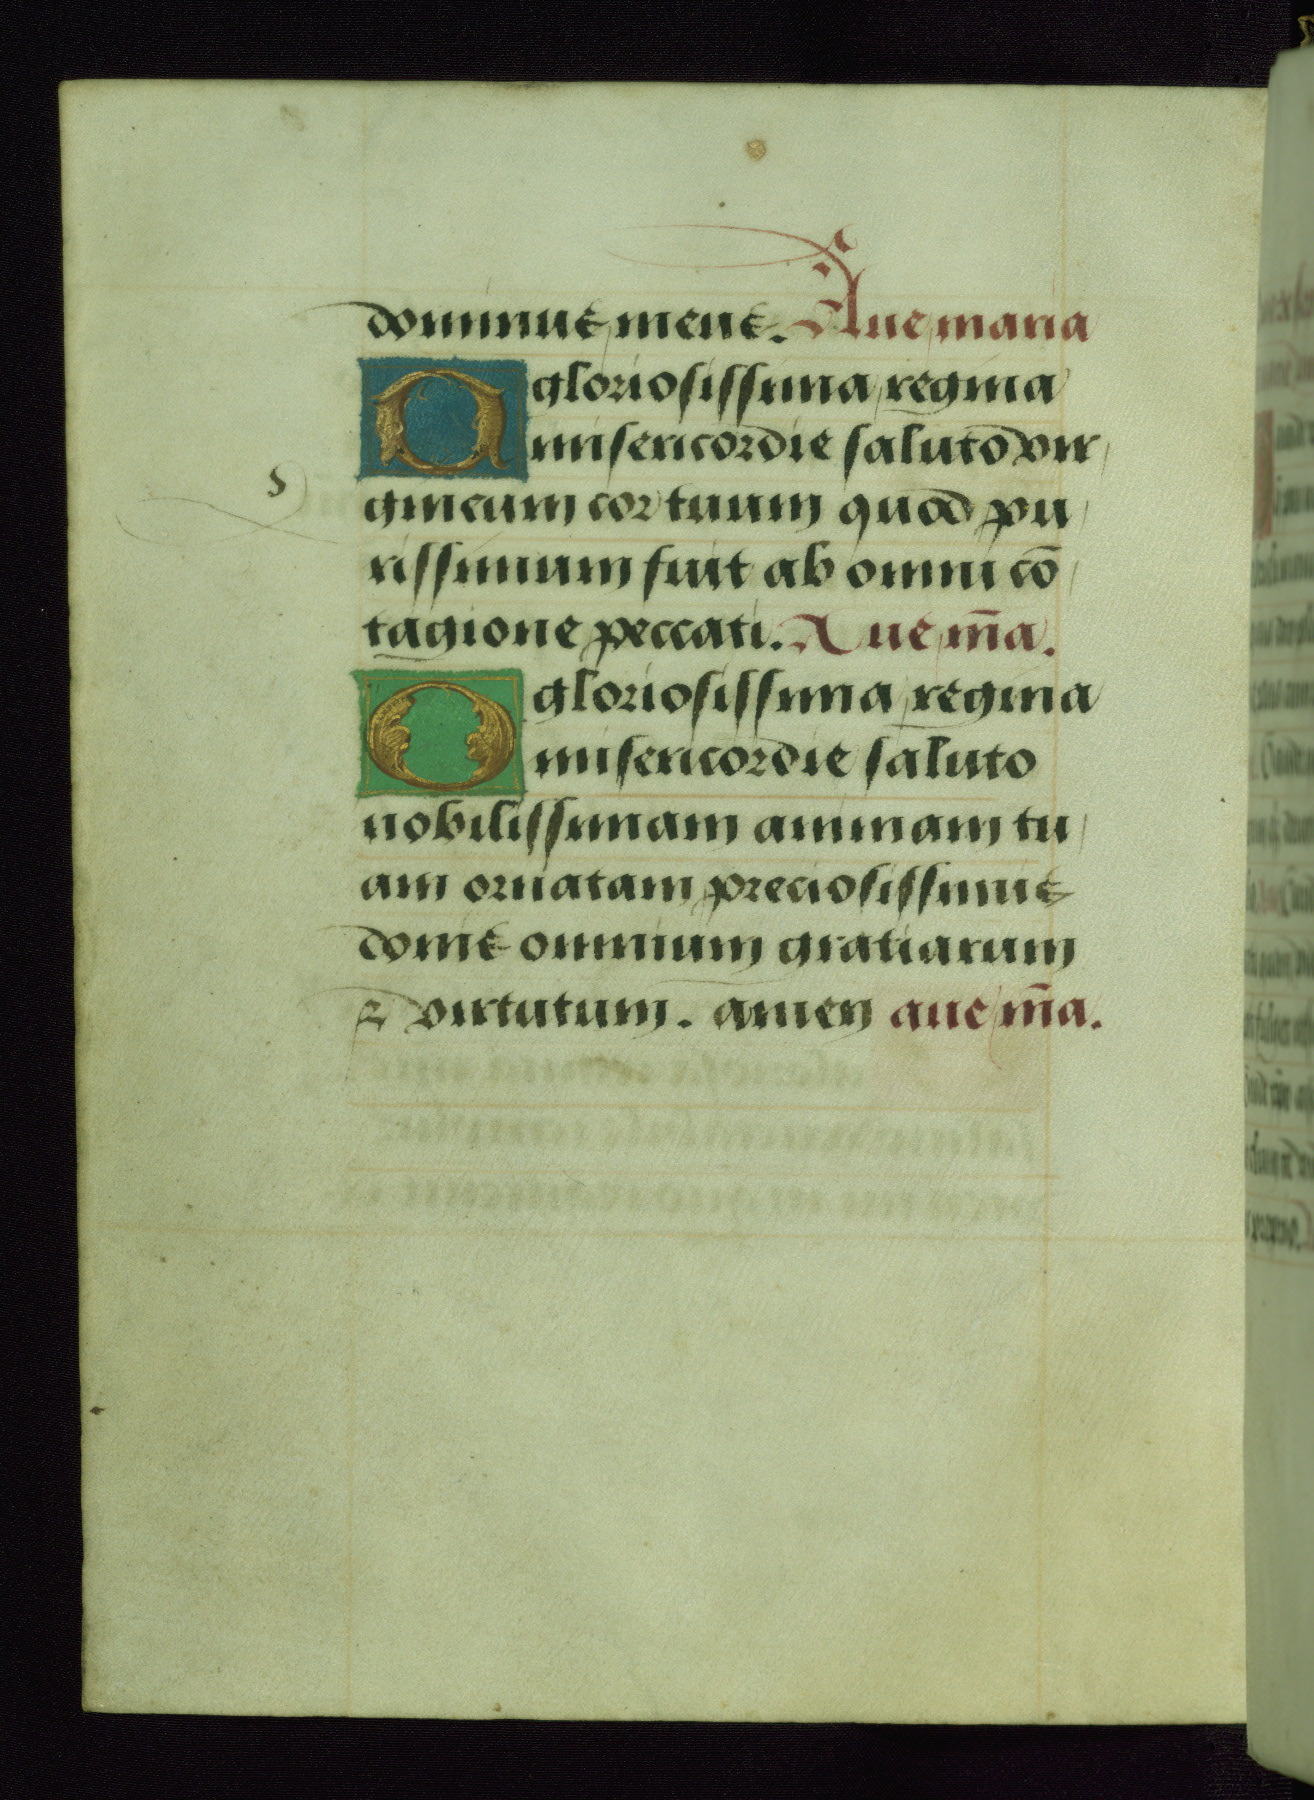 dominus meus. Aue maria
O gloriosissima regina
misericordie saluto vir
gineum cor tuum quod pu
s
rissimum fuit ab omni cō
tagione peccati. Aue m̄a.
O gloriosissima regina
misericordie saluto
nobilissimam animam tu
am ornatam preciosissimis
donis omnium gratiarum
⁊ virtutum. amen aue m̄a.